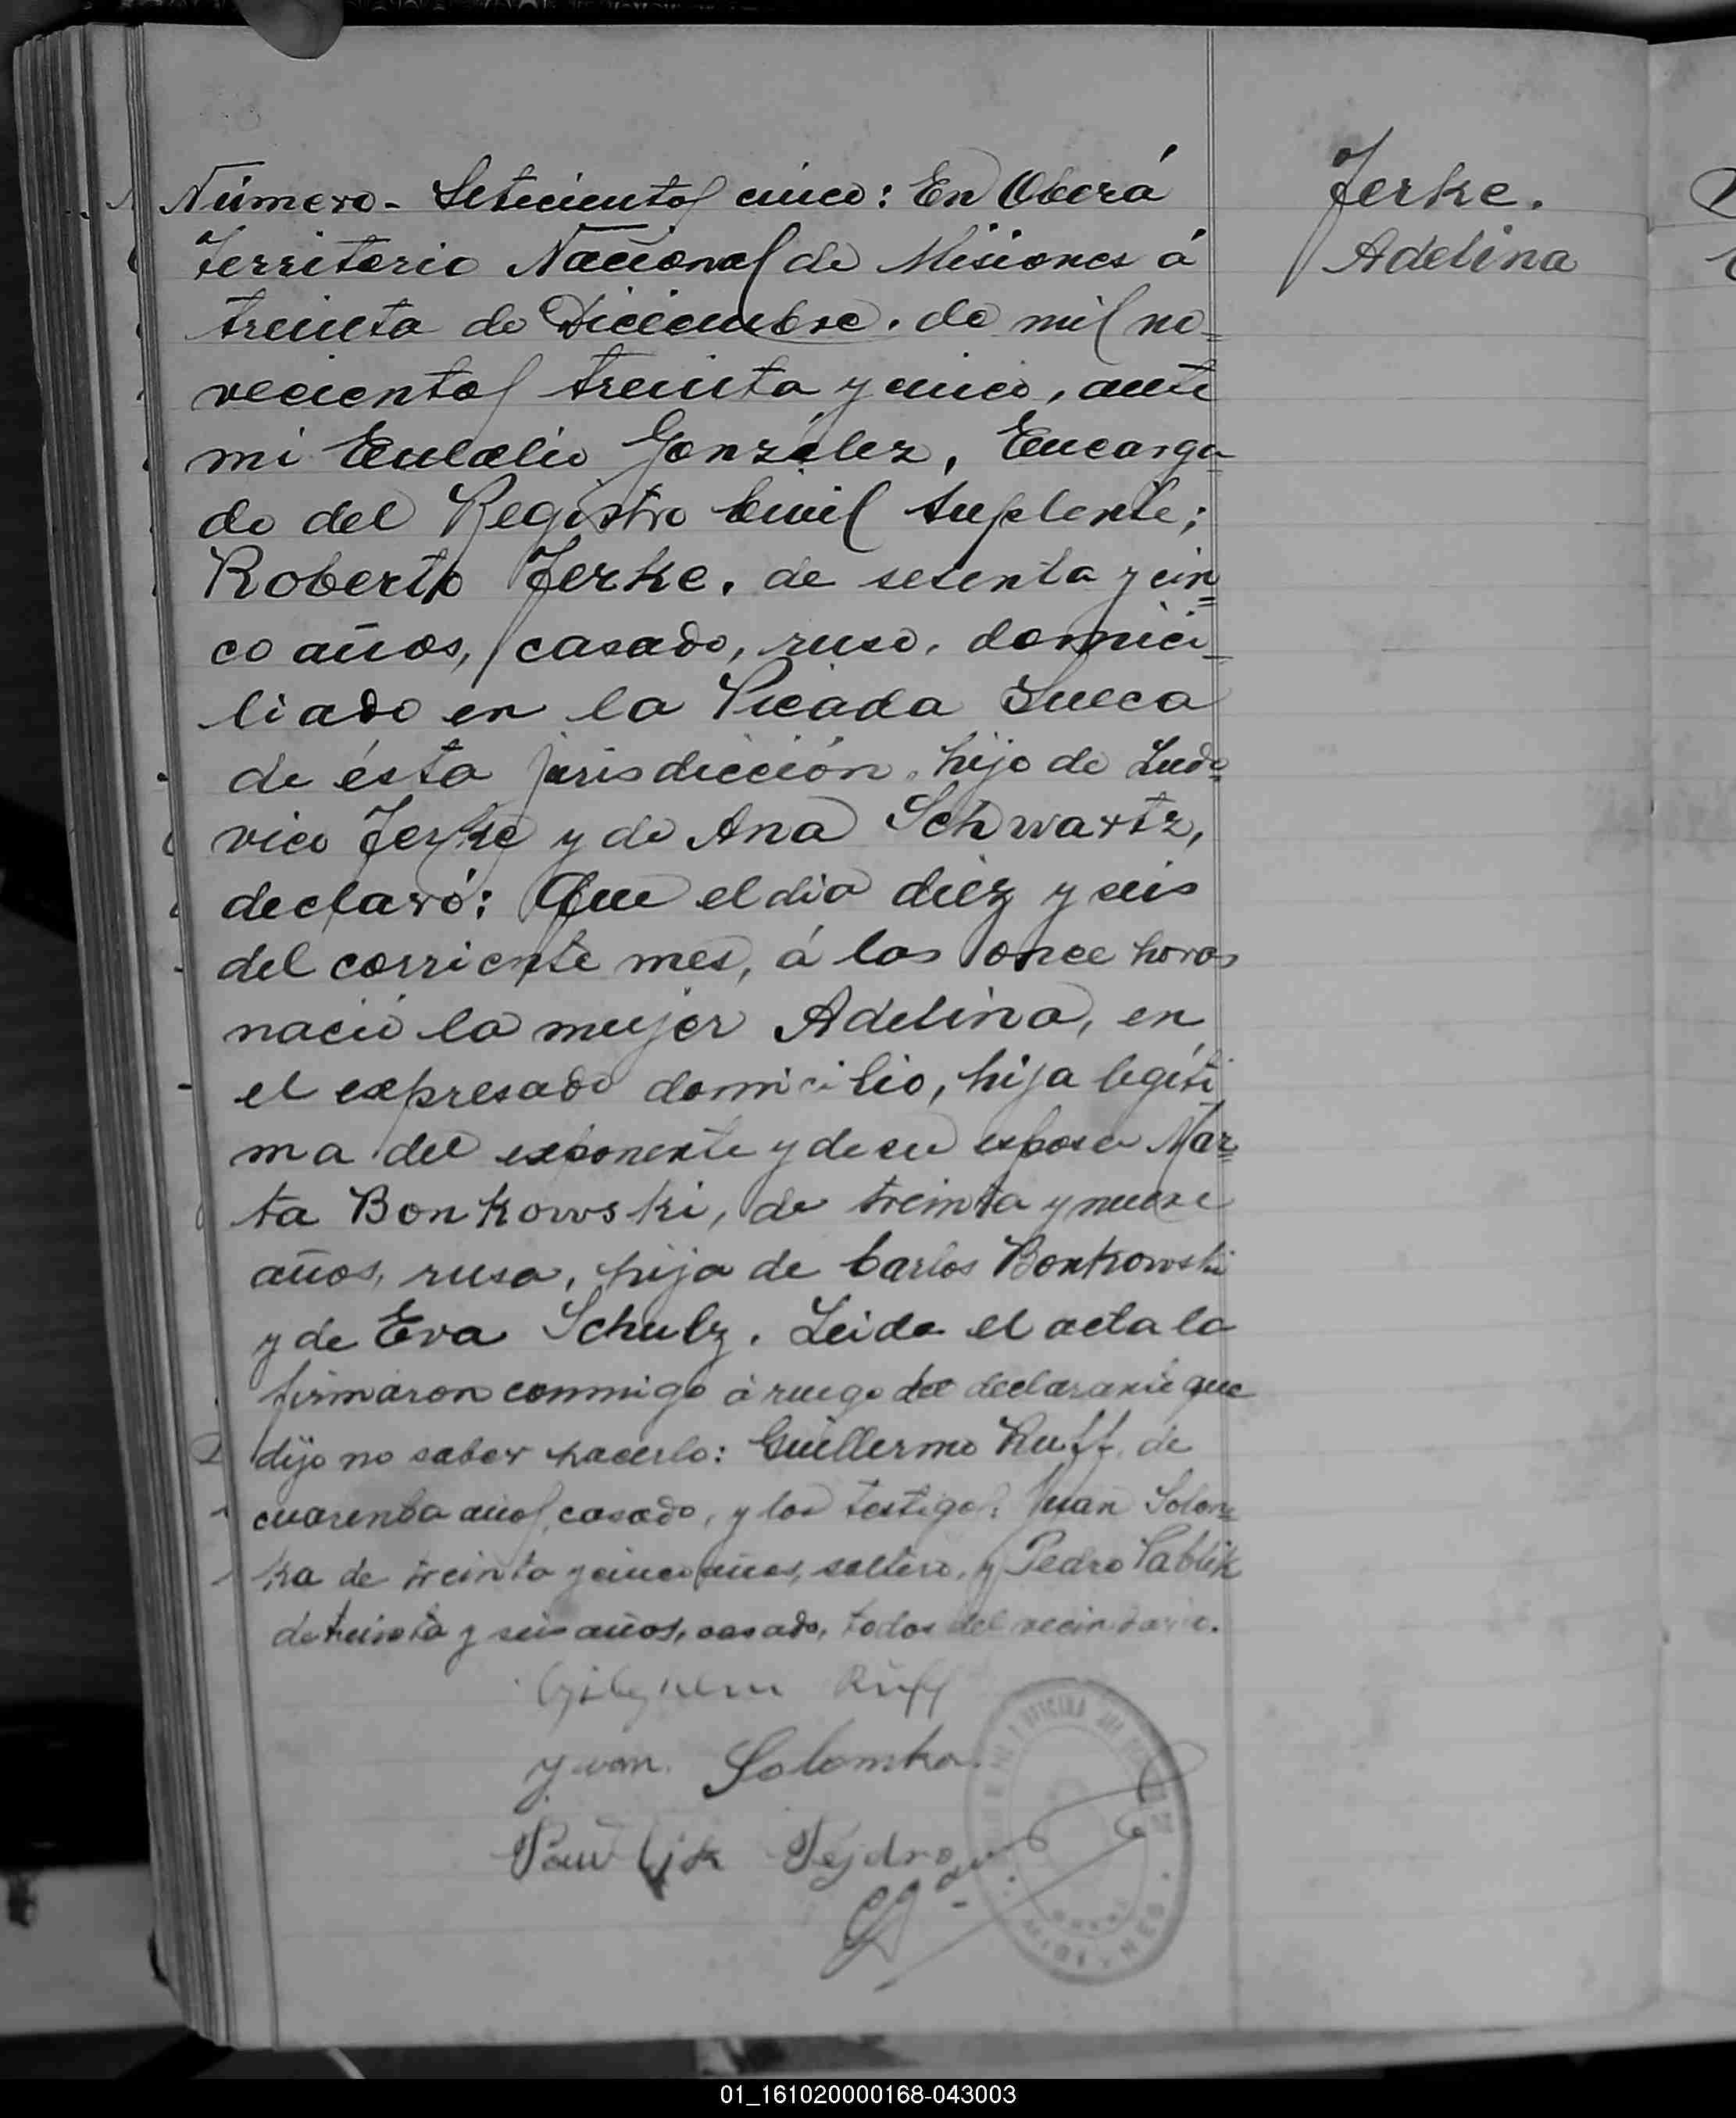 Número - Setecientos cinco: En Oberá
Territorio Nacional de Misiones á
treinta de Diciembre. de mil no=
vecientos treinta y cinco, ante
mi Eulalio González, Encarga
do del Registro Civil Suplente;
Roberto Jerke. de sesenta y cin=
co años, casado, ruso, domici-
liado en la Picada Sueca
de ésta jurisdicción, hijo de Ludo=
vico Jerke y de Ana Schwartz,
declaró: Que el dia diez y seis
del corriente mes, á las once horas
nació la mujer Adelina, en
el expresado domicilio, hija legíti-
ma del exponente y de su esposa Mar=
ta Bonkowski, de treinta y nueve
años, rusa, hija de Carlos Bonkowski
y de Eva Schulz. Leida el acta la
firmaron conmigo á ruego del declarante que
dijo no saber hacerlo: Guillermo Ruff, de
cuarenta años, casado, y los testigos: Juan Solom=
ka de treinta y cinco años, soltero, y Pedro Pablik
de treinta y seis años, casado, todos del vecindario.
Ruff
Solomka.
Pejdro
MISIONES
Jerke.
Adelina
01_161020000168-043003